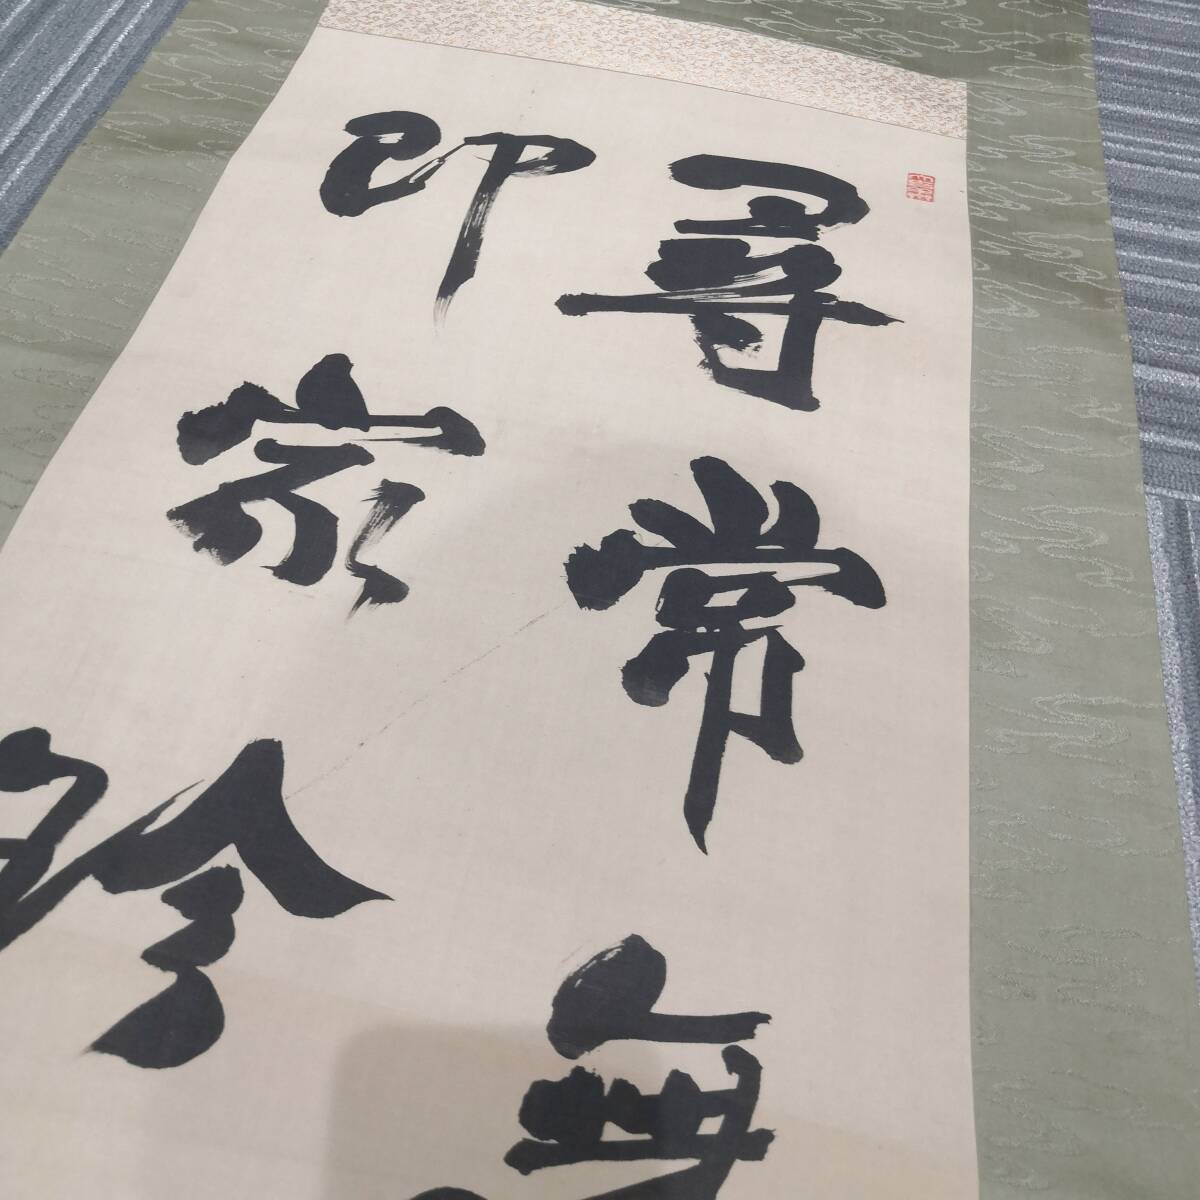 尋常無
即家珍